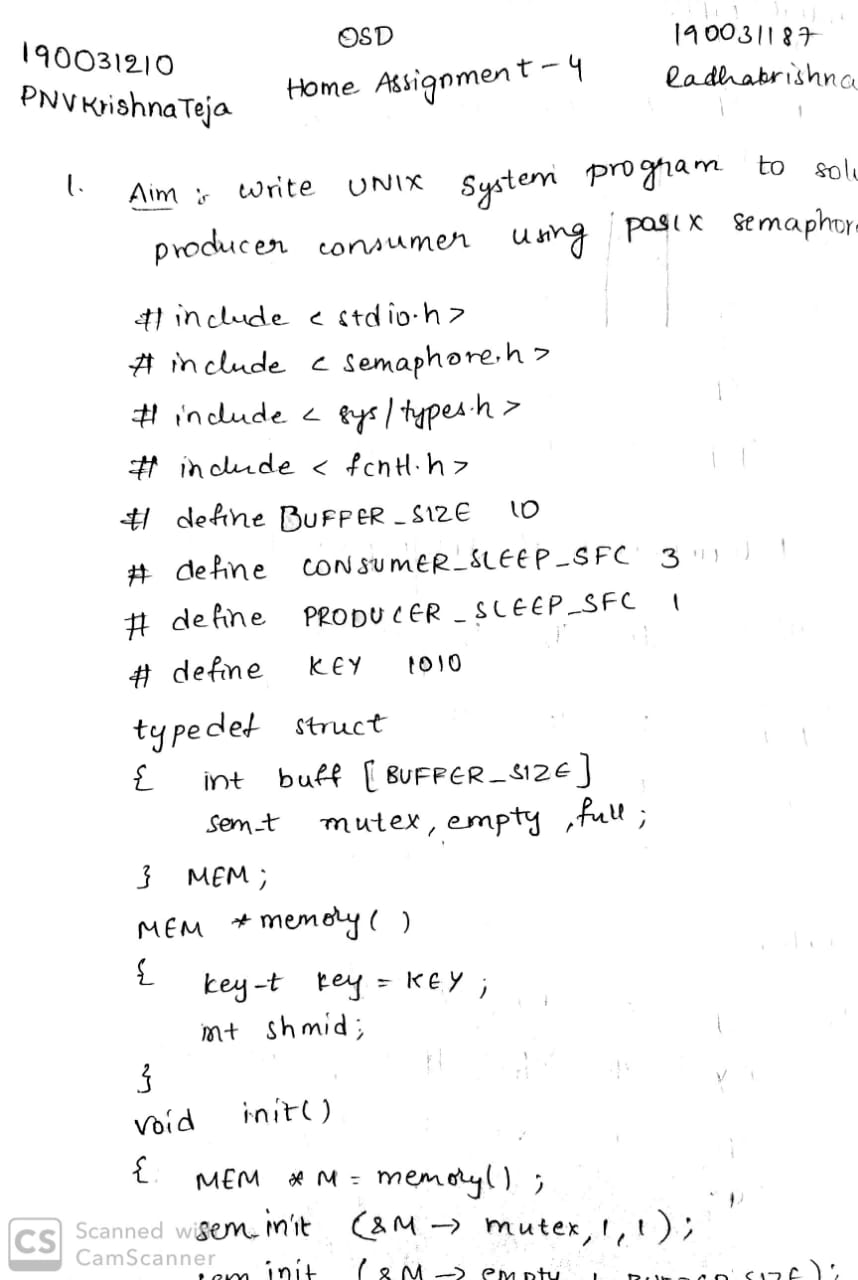 OSD
190031210
190031187
PNVKrishnaTeja
Home Assignment - 4
Radhakrishna
1. Aim :- write UNIX System program to
producer consumer using posix semaphore
# include < stdio.h>
# include < semaphore.h>
# include < sys/types.h>
# include < fcntl.h>
# define BUFFER_SIZE 10
# define CONSUMER_SLEEP_SEC 3
# define PRODUCER_SLEEP_SEC 1
# define KEY 1010
typedef struct
{ int buff [BUFFER_SIZE]
sem_t mutex, empty, full;
} MEM;
MEM *memory( )
{ key-t key = KEY;
int shmid;
}
void init()
{ MEM * M = memory();
sem_init (&M → mutex,1,1);
init (&M → empty
CS Scanned with
CamScanner